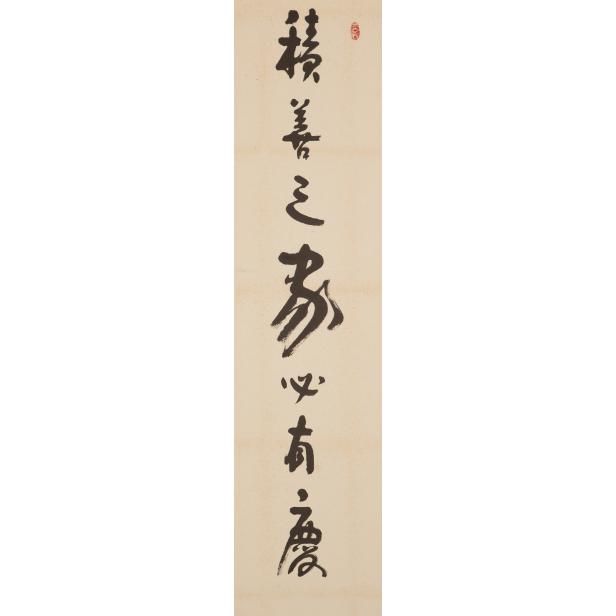 積善之家必有慶